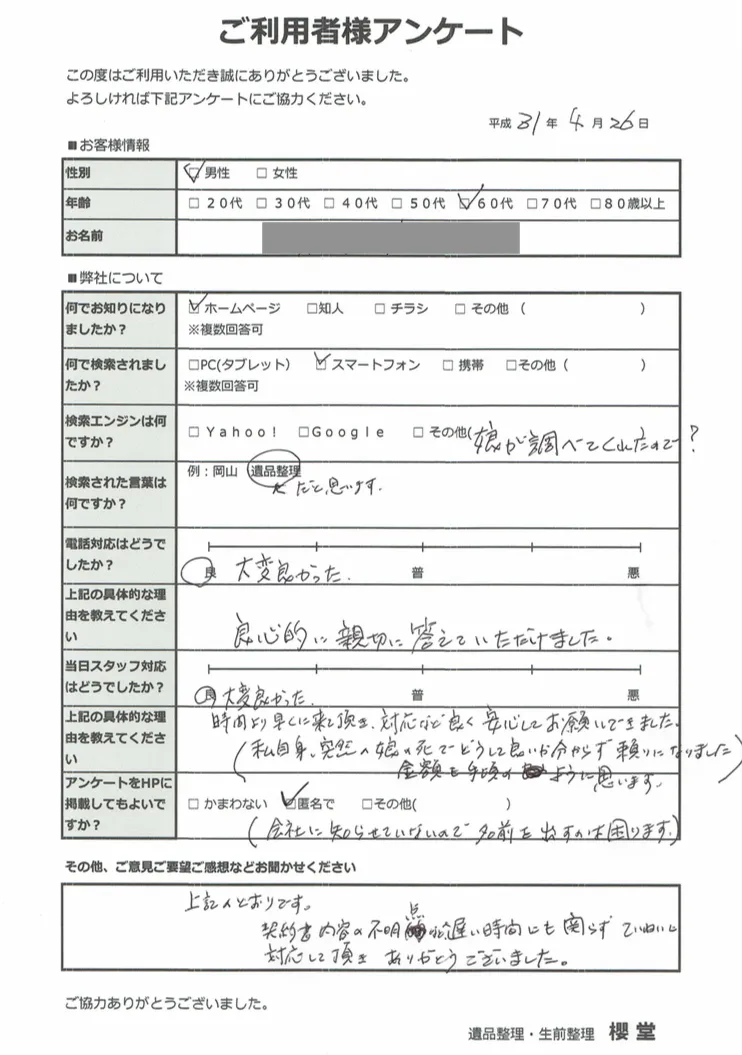 ご利用者様アンケート
この度はご利用いただき誠にありがとうございました。
よろしければ下記アンケートにご協力ください。
平成 31 年 4 月 26 日
■お客様情報
性別 ☑男性 □女性
年齢 □20代 □30代 □40代 □50代 ☑60代 □70代 □80歳以上
お名前
■弊社について
何でお知りになり ☑ホームページ □知人 □チラシ □その他 ( )
ましたか？ ※複数回答可
何で検索されまし □PC(タブレット) ☑スマートフォン □携帯 □その他 ( )
たか？ ※複数回答可
検索エンジンは何 □Yahoo! □Google □その他( 娘が調べてくれたので？
ですか？
検索された言葉は 例：岡山 遺品整理
何ですか？ だと思います.
電話対応はどうで
したか？ 良 大変良かった. 普 悪
上記の具体的な理
由を教えてくださ
い 良心的に親切に答えていただけました。
当日スタッフ対応
はどうでしたか？ 良 大変良かった. 普 悪
上記の具体的な理 時間より早くに来て頂き、対応など良く安心してお願いできました.
由を教えてくださ (私自身、突然の娘の死でどうして良いか分からず頼りになりました)
い 金額も手頃のように思います.
アンケートをHPに
掲載してもよいで □かまわない ☑匿名で □その他( )
すか？ (会社に知らせていないので名前を出すのは困ります.)
その他、ご意見ご要望ご感想などお聞かせください
上記のとおりです。
契約書内容の不明点 遅い時間にも関らずていねいに
対応して頂き ありがとうございました。
ご協力ありがとうございました。
遺品整理・生前整理 櫻堂